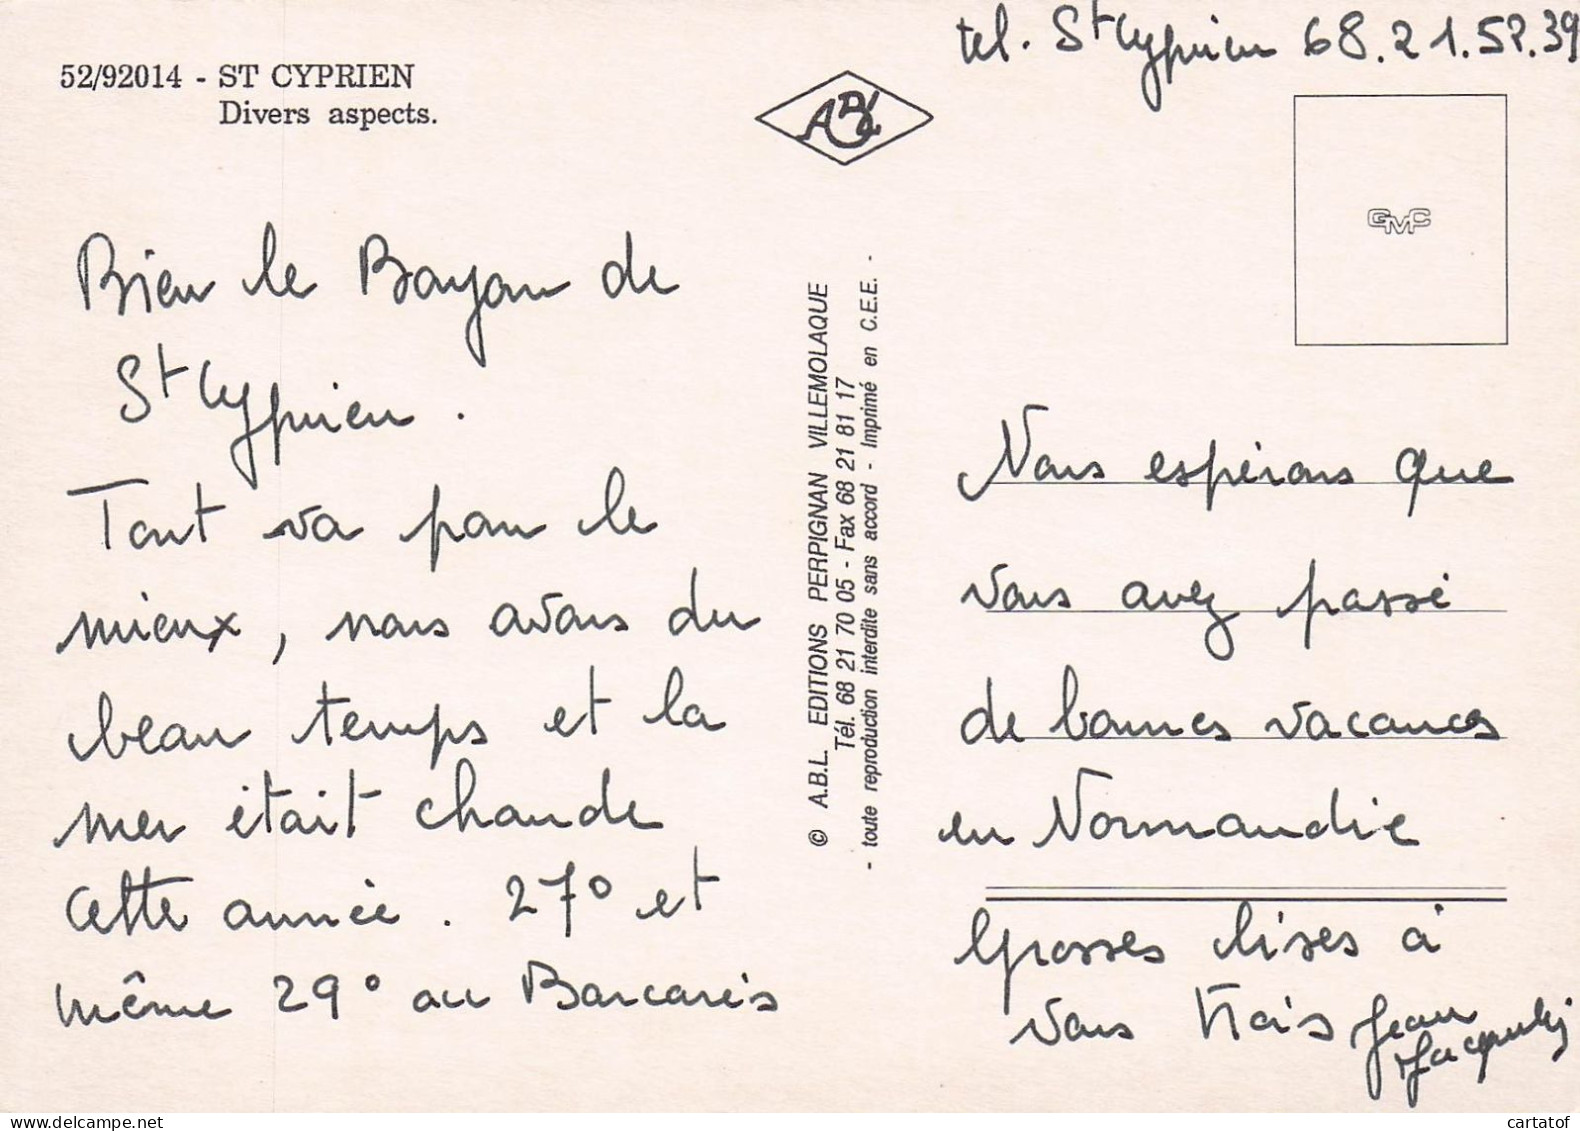 tel. St Cyprien 68.21.52.39
52/92014 - ST CYPRIEN
Divers aspects.
ABL
GMC
Bien le Bonjour de
St Cyprien.
Tout va pour le
mieux, nous avons du
beau temps et la
mer était chaude
cette année. 27° et
même 29° au Barcarès
© A.B.L. EDITIONS PERPIGNAN VILLEMOLAQUE
Tél. 68 21 70 05 - Fax 68 21 81 17
- toute reproduction interdite sans accord - Imprimé en C.E.E. -
Nous espérons que
vous avez passé
de bonnes vacances
en Normandie
Grosses bises à
vous trois Jean
Jacqueline
cartatof
delcampe.net